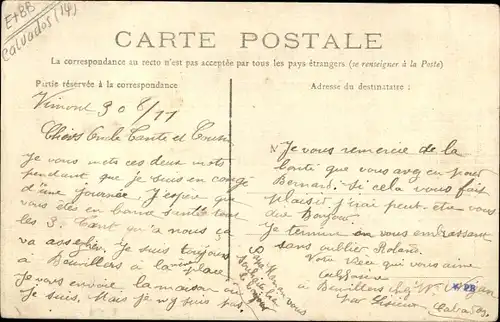 E+BB
Calvados (14)
CARTE POSTALE
La correspondance au recto n'est pas acceptée par tous les pays étrangers (se renseigner à la Poste)
Partie réservée à la correspondance
Adresse du destinataire :
Vimont 30 8/11
Chers Oncle Tante et Cousin
Je vous mets ces deux mots
pendant que je suis en congé
d'une journée. J'espère que
vous êtes en bonne santé tout
les 3. Tant qu'a nous ça
va assez bien. Je suis toujours
à Beuvillers à la place
Je vous envoie la maison où
Je suis. Mais je n'y suis pas.
Maman vous
Je vous remercie de la
bonté que vous avez eu pour
Bernard. Si cela vous fait
plaisir j'irai peut-être vous
dire Bonjour.
Je termine en vous embrassant
sans oublier Roland.
Votre nièce qui vous aime
à Beuvillers chez Mr
par Lisieux Calvados